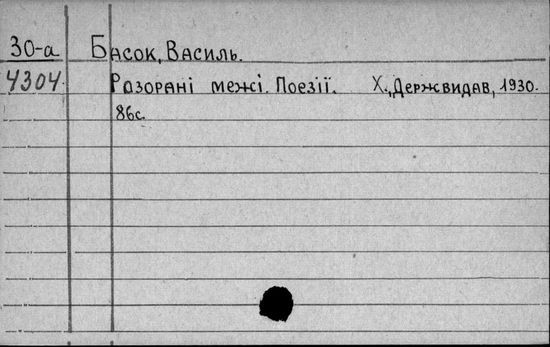 30-а Басок, Василь.
4304 Розорані межі. Поезії. Х., Держвидав, 1930.
86с.